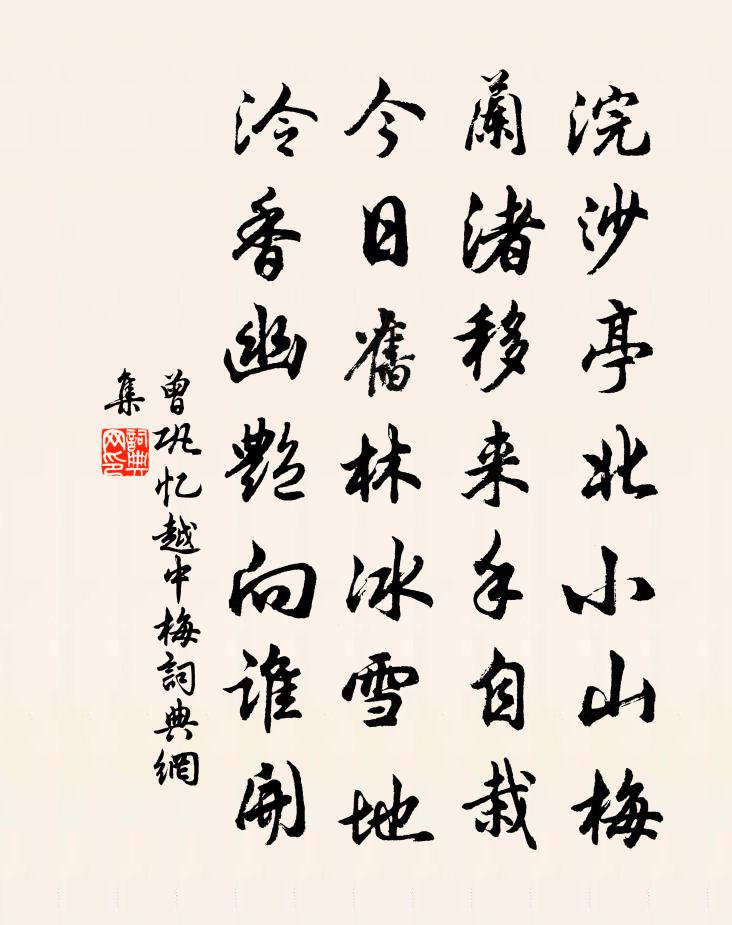 浣沙亭北小山梅
蘭渚移来手自栽
今日舊林冰雪地
冷香幽艷向誰開
曾巩忆越中梅詞典網
集
詞典
网印